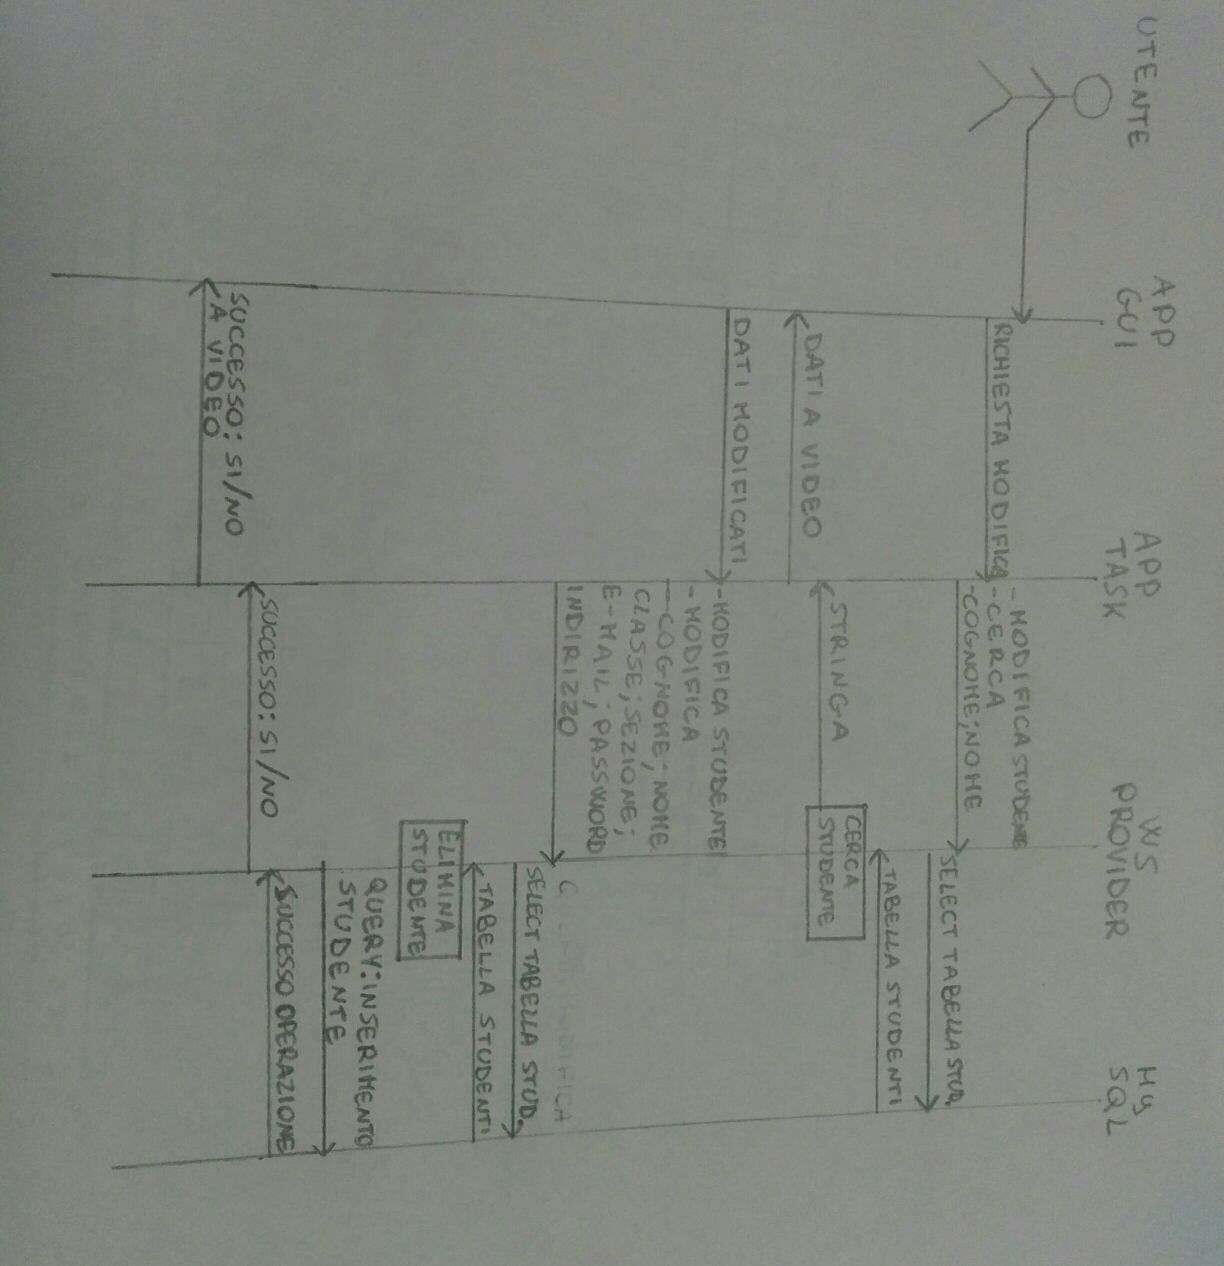 UTENTE
APP
GUI
APP
TASK
WS
PROVIDER
My
SQL
RICHIESTA MODIFICA
- MODIFICA STUDENTE
- CERCA
- COGNOME; NOME
SELECT TABELLA STUD.
TABELLA STUDENTI
CERCA
STUDENTE
STRINGA
DATI A VIDEO
DATI MODIFICATI
- MODIFICA STUDENTE
- MODIFICA
- COGNOME; NOME
CLASSE; SEZIONE;
E-MAIL; PASSWORD
INDIRIZZO
SELECT TABELLA STUD.
TABELLA STUDENTI
ELIMINA
STUDENTE
QUERY: INSERIMENTO
STUDENTE
SUCCESSO OPERAZIONE
SUCCESSO: SI/NO
SUCCESSO: SI/NO
A VIDEO